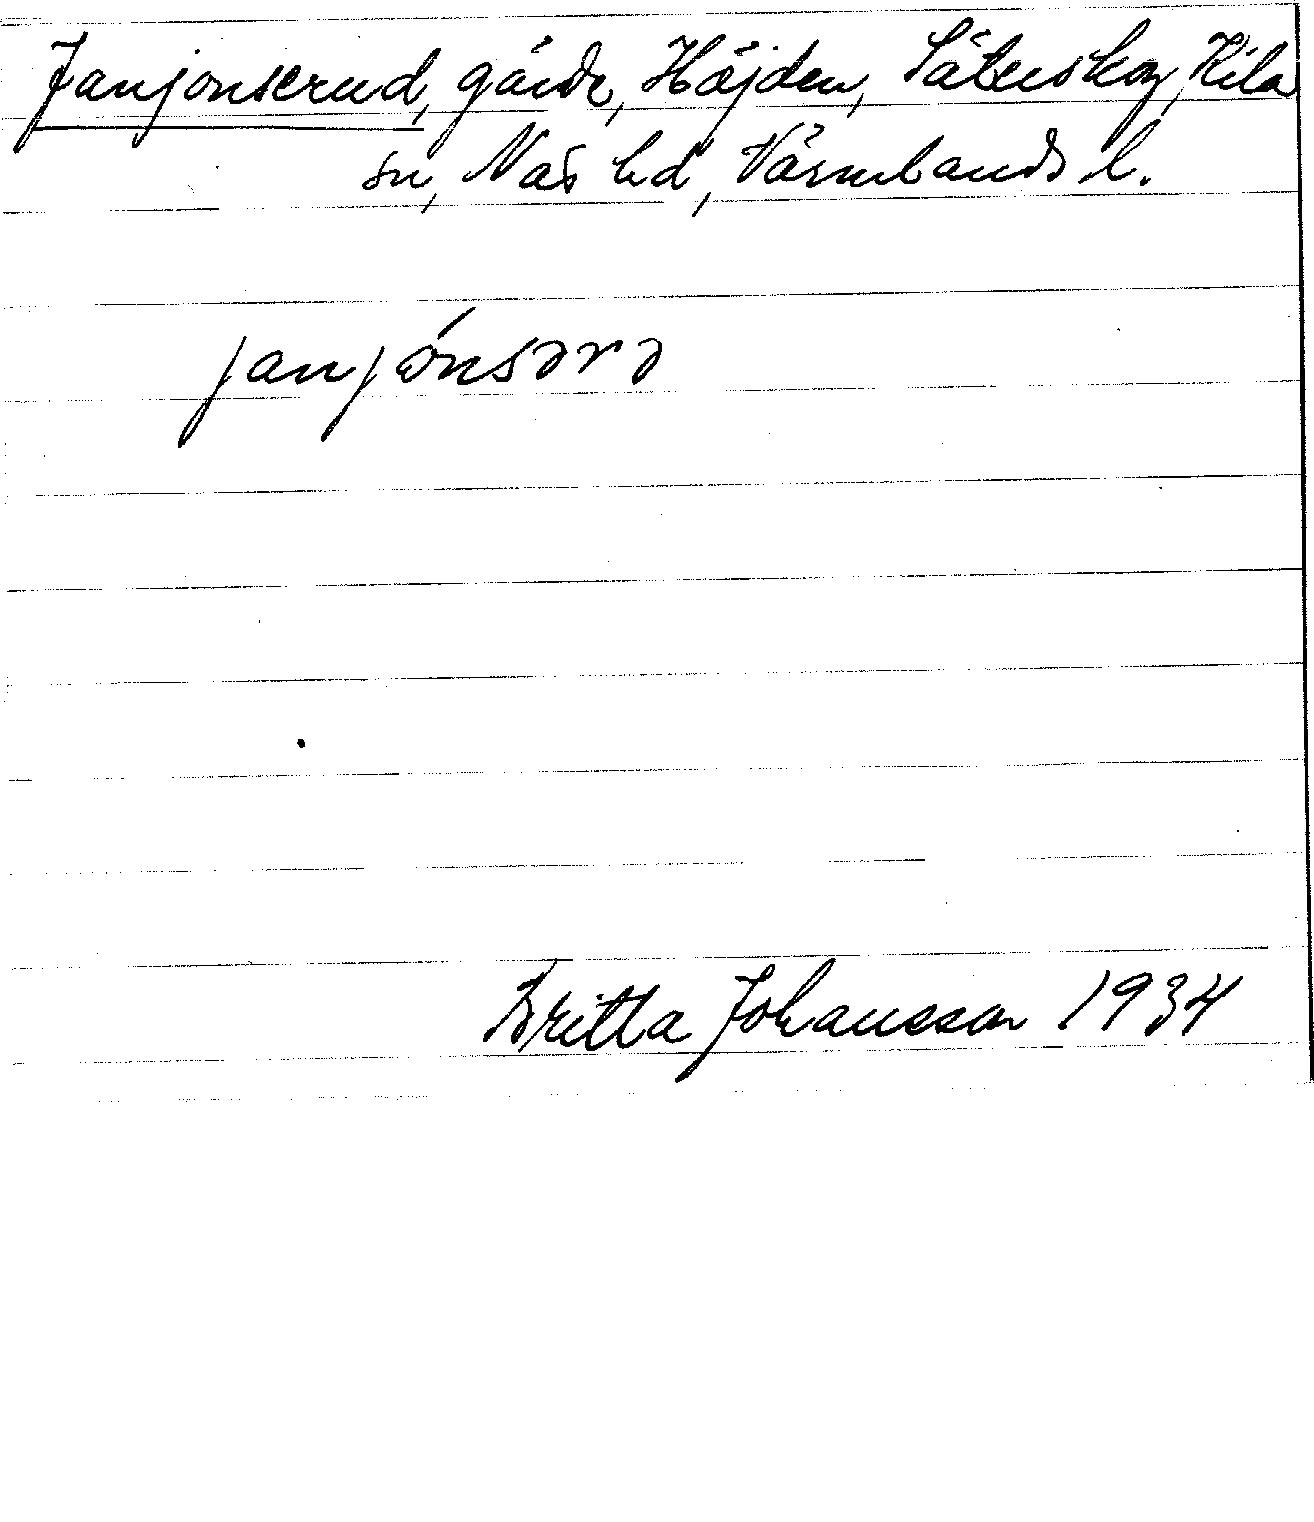 Janjonserud, gärde, Höjden, Säterskog, Kila
sn, Näs hd, Värmlands l.
janjónsərə
Britta Johansson 1934